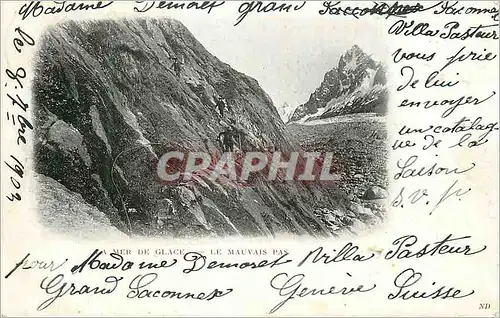 Madame Demoret grand Saconnex Saconnex
Villa Pasteur
vous prie
de lui
envoyer
un catalog
ue de la
Saison
s.v.p.
Le 9. 7bre 1903
CPRISM
LA MER DE GLACE. LE MAUVAIS PAS
pour Madame Demoret Villa Pasteur
Grand Saconnex Genève Suisse
ND